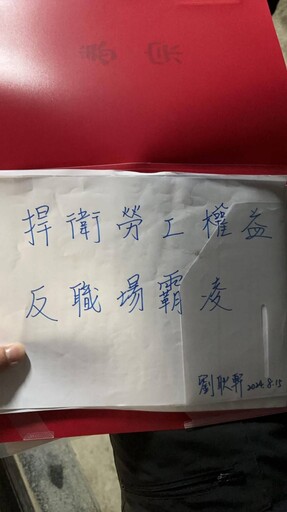 捍衛勞工權益
反職場霸凌
劉耿軒 2024.8.15